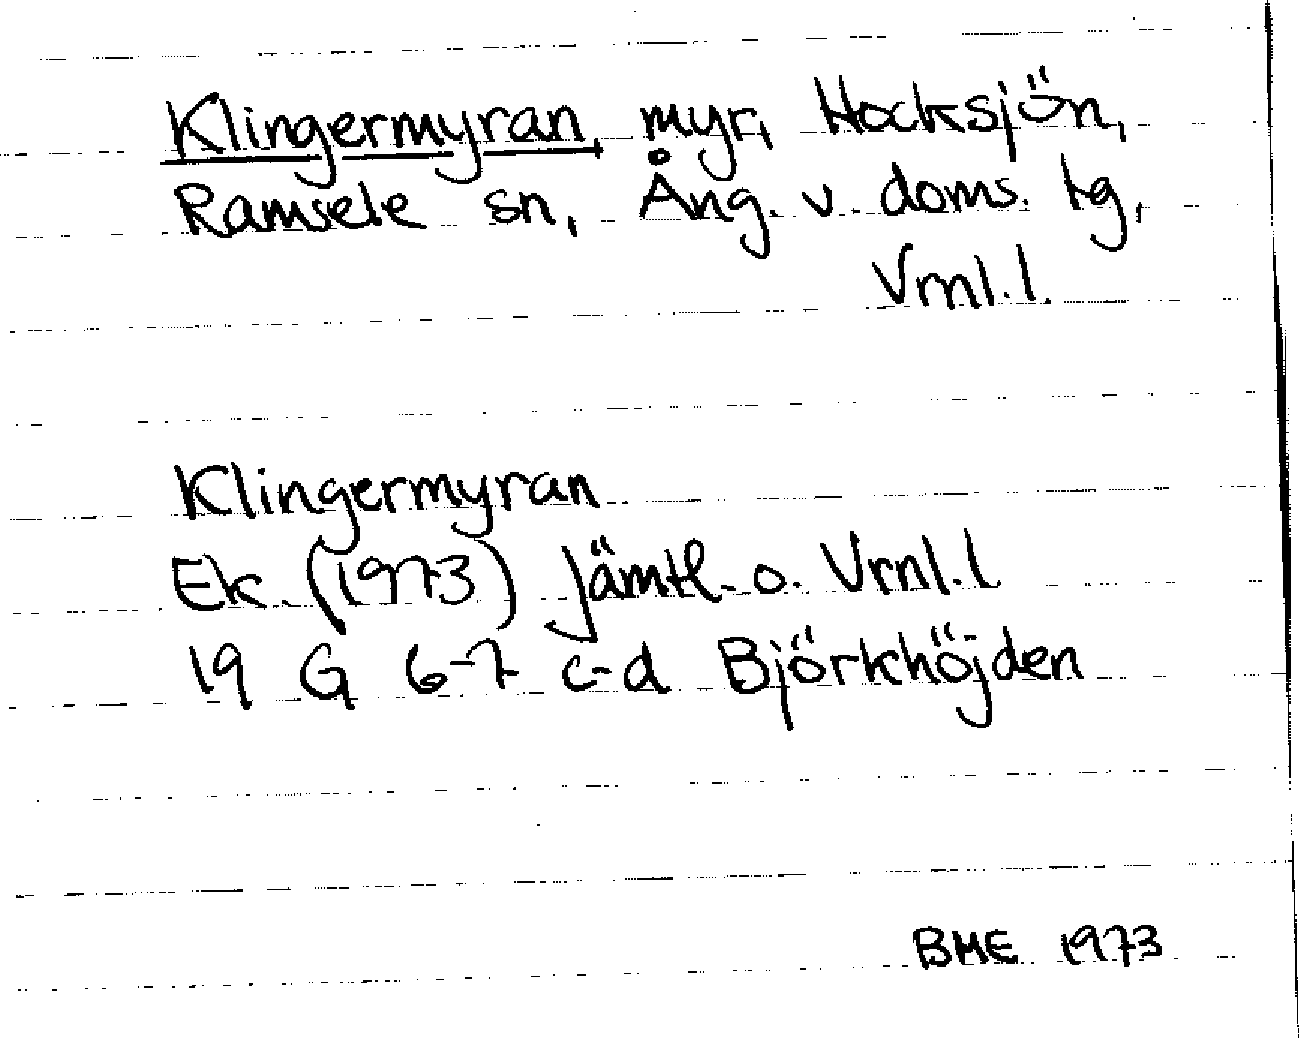 Klingermyran, myr, Hocksjön,
Ramsele sn, Ång. v. doms. tg,
Vrnl.l.
Klingermyran
Ek. (1973) Jämtl. o. Vrnl.l
19 G 6-7 c-d Björkhöjden
BME 1973